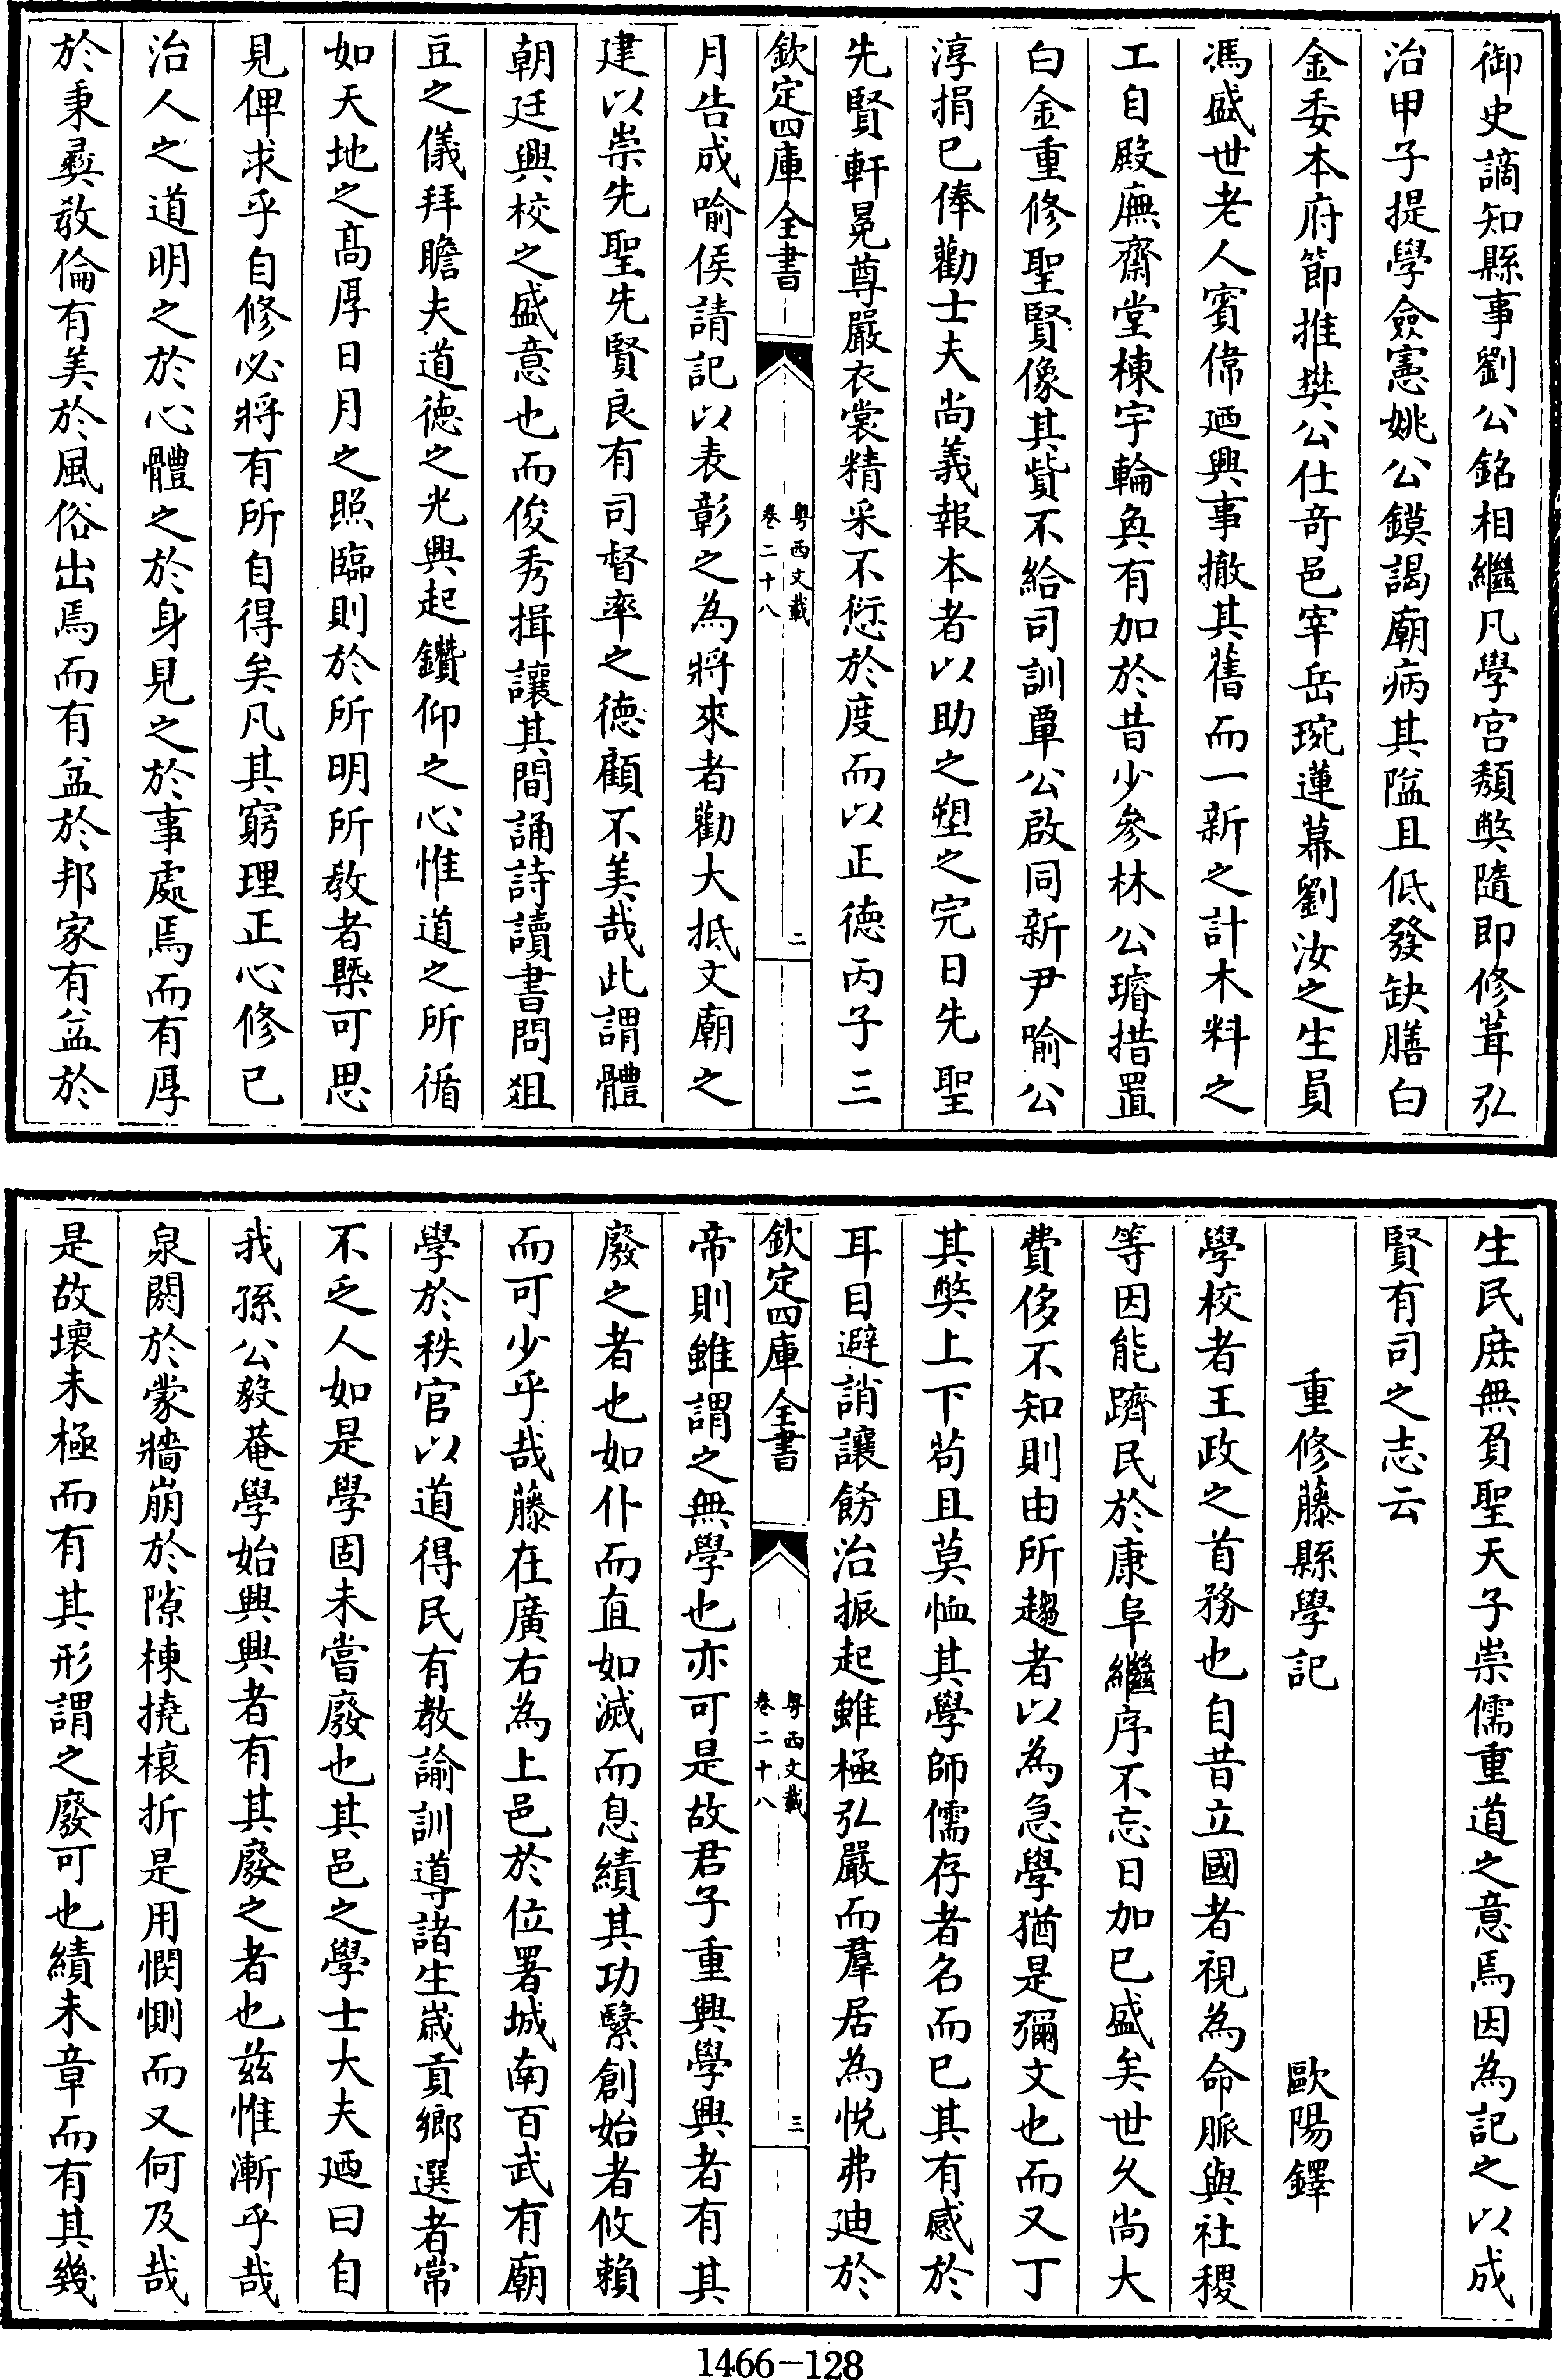 御史謫知縣事劉公銘相繼凡學宫頽獘隨即修葺弘
治甲子提學僉憲姚公鏌謁廟病其隘且低發缺膳白
金委本府節推樊公仕竒邑宰岳琬蓮幕劉汝之生員
馮盛世老人賓偉廼興事撤其舊而一新之計木料之
工自殿廡齋堂棟宇輪奐有加於昔少參林公璿措置
白金重修聖賢像其貲不給司訓覃公啟同新尹喻公
淳捐已俸勸士夫尚義報本者以助之塑之完日先聖
先賢軒冕尊嚴衣裳精采不愆於度而以正德丙子三
欽定四庫全書
粤西文載
卷二十八
二
月告成喻侯請記以表彰之為將來者勸大抵文廟之
建以崇先聖先賢良有司督率之德顧不美哉此謂體
朝廷興校之盛意也而俊秀揖讓其間誦詩讀書問俎
豆之儀拜瞻夫道德之光興起鑽仰之心惟道之所循
如天地之髙厚日月之照臨則於所明所教者槩可思
見俾求乎自修必將有所自得矣凡其窮理正心修已
治人之道明之於心體之於身見之於事處焉而有厚
於秉彛敎倫有美於風俗出焉而有益於邦家有益於
生民庶無負聖天子崇儒重道之意焉因為記之以成
賢有司之志云
重修藤縣學記
歐陽鐸
學校者王政之首務也自昔立國者視為命脈與社稷
等因能躋民於康阜繼序不忘日加已盛矣世乆尚大
費侈不知則由所趨者以為急學猶是彌文也而又丁
其獘上下茍且莫恤其學師儒存者名而已其有感於
耳目避誚讓餙治振起雖極弘嚴而羣居為悦弗廸於
欽定四庫全書
粤西文載
卷二十八
三
帝則雖謂之無學也亦可是故君子重興學興者有其
廢之者也如仆而直如滅而息績其功繄創始者攸賴
而可少乎哉藤在廣右為上邑於位署城南百武有廟
學於秩官以道得民有教諭訓導諸生嵗貢鄉選者常
不乏人如是學固未嘗廢也其邑之學士大夫廼曰自
我孫公毅菴學始興興者有其廢之者也兹惟漸乎哉
泉閼於蒙牆崩於隙棟撓榱折是用憫惻而又何及哉
是故壞未極而有其形謂之廢可也績未章而有其幾
1466-128